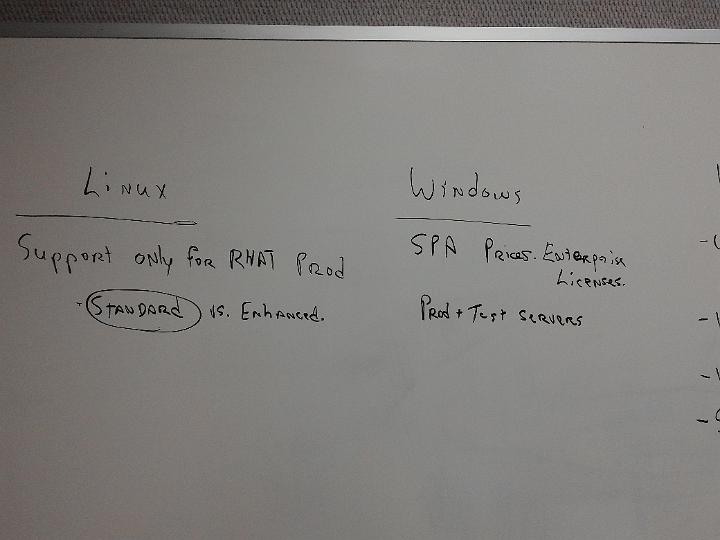 Linux
Support only for RHAT Prod
- STANDARD vs. Enhanced.
Windows
SPA Prices. Enterprise
Licenses.
Prod + Test servers